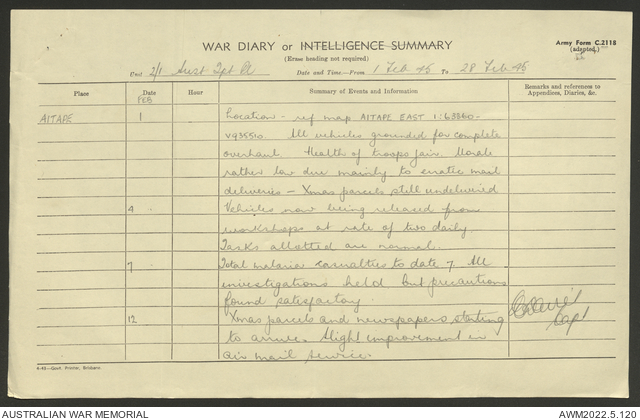 WAR DIARY or INTELLIGENCE SUMMARY
(Erase heading not required)
Army Form C.2118
(adapted)
Unit 2/1 Aust Tpt Pl Date and Time—From 1 Feb 45 To 28 Feb 45
Place Date Hour Summary of Events and Information Remarks and references to Appendices, Diaries, &c.
FEB
AITAPE 1 Location - ref map AITAPE EAST 1:63360 -
V935510 All vehicles grounded for complete
overhaul. Health of troops fair. Morale
rather low due mainly to erratic mail
deliveries - Xmas parcels still undelivered
4 Vehicles now being released from
workshops at rate of two daily.
Tasks allotted are normal.
7 Total malaria casualties to date 7. All
investigations held but precautions
found satisfactory.
12 Xmas parcels and newspapers starting
to arrive. Slight improvement in
air mail service.
Capt
4-43—Govt. Printer, Brisbane.
AUSTRALIAN WAR MEMORIAL
AWM2022.5.120